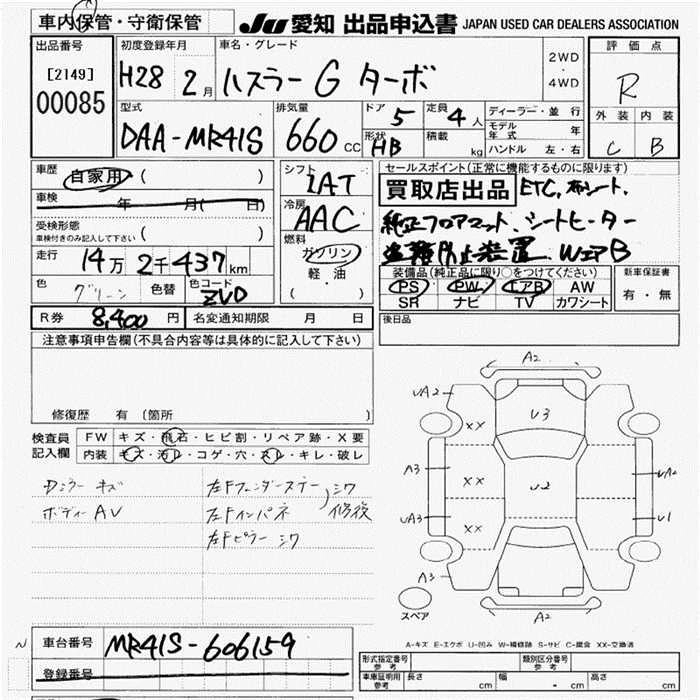 車内保管・守衛保管 JU 愛知 出品申込書 JAPAN USED CAR DEALERS ASSOCIATION
出品番号 初度登録年月 車名・グレード 評価点
[2149] 00085 H28 2月 ハスラー G ターボ 2WD・4WD R
型式 排気量 ドア 定員 ディーラー・並行 外装 内装
DAA-MR41S 660 CC 5 4人 モデル年式 年 C B
形状 HB 積載 kg ハンドル 左・右
車歴 自家用 ( ) シフト IAT セールスポイント(正常に機能するものに限ります)
車検 年 月( ) 冷房 AAC 買取店出品 ETC, 布シート,
受検形態 車検付きのみ記入して下さい ( ) 純正フロアマット、シートヒーター
走行 14万 2千 437km 燃料 ガソリン 盗難防止装置. WエアB
色 グリーン 色替 色コード ZVD 軽油 ( )
装備品(純正品に限り○をつけてください) 新車保証書
PS PW エアB AW 有・無
SR ナビ TV カワシート
R券 8,400円 名変通知期限 月 日 後日品
注意事項申告欄(不具合内容等は具体的に記入して下さい)
修復歴 有 [箇所 ]
検査員記入欄 FW キズ・飛石・ヒビ割・リペア跡・X要
内装 キズ・汚レ・コゲ・穴・スレ・キレ・破レ
Dミラー キズ 左Fフェンダーステー シワ
ボディー AV 左Fインパネ 修復
左Fピラー シワ
A2
UA2 XX U3
A3 XX U2 UA2
UA3 XX U1
A3 A2
スペア
A-キズ E-エクボ U-凹み W-補修跡 S-サビ C-腐食 XX-交換済
車台番号 MR41S-606159
登録番号
形式指定番号 参考 類別区分番号 参考
車庫証明用 参考 長さ cm 幅 - cm 高さ cm
N